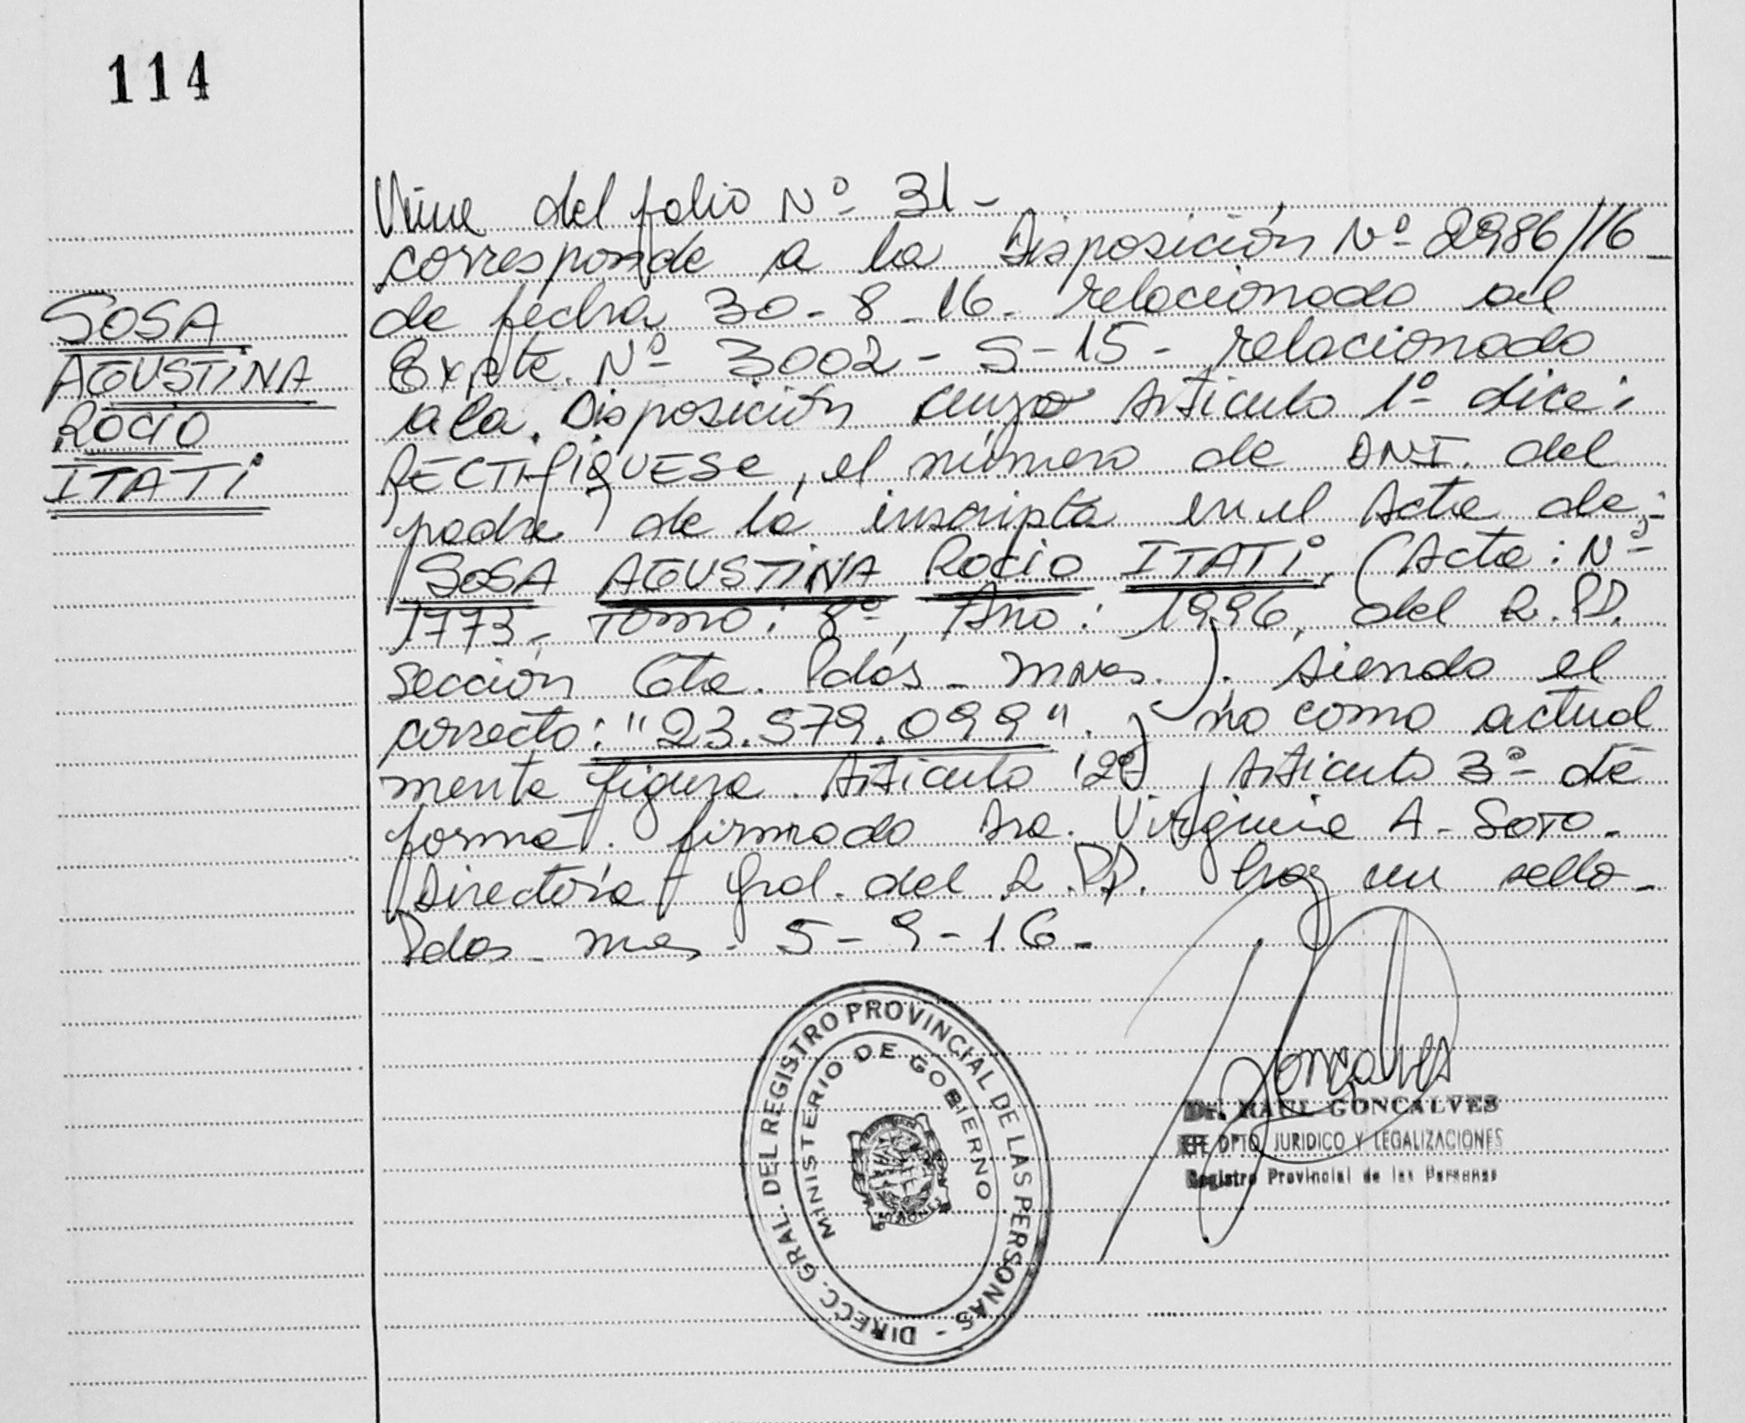 114
SOSA
AGUSTINA
ROCIO
ITATI
Viene del folio Nº 31-
corresponde a la Disposición Nº 2986/16
de fecha 30-8-16- relacionado al
Expte. Nº 3002-S-15- relacionado
a la Disposición cuyo Articulo 1º dice:
RECTIFIQUESE, el número de DNI. del
padre de la inscripta en el Acta de:-
SOSA AGUSTINA ROCIO ITATI, (Acta: Nº
1773- Tomo: 8º, Año: 1996, del R.P.P.
Sección Cta. Pdas- Mnes.). siendo el
correcto: "23.579.099". y no como actual
mente figura. Articulo 2º, Articulo 3º de
forma. firmado Sra. Virginia A. Soto.
Directora Gral. del R.P.P. hay un sello-
Pdas- Mnes- 5-9-16-
DIRECC. GRAL. DEL REGISTRO PROVINCIAL DE LAS PERSONAS -
MINISTERIO DE GOBIERNO
MISIONES
Goncalves
Dr. RAUL GONCALVES
JEFE DPTO. JURIDICO Y LEGALIZACIONES
Registro Provincial de las Personas